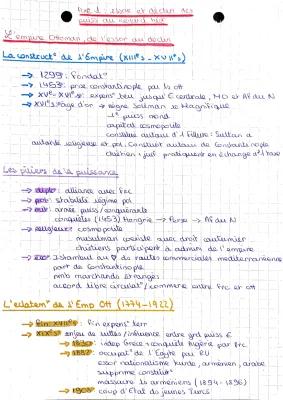 Axe 1 : essor et déclin des
puiss au regard hist
L'empire Ottoman, de l'essor au déclin
La construct° de l'Empire (XIIIe s - XVIIe s)
→ 1299 : Fondat°
→ 1453 : prise constantinople par ls ott
→ XVe - XVIe s : expans° terr jusqu'E centrale, MO et Af du N
→ XVIe s : âge d'or → règne Soliman le Magnifique
1e puiss mond
capital cosmopolite
constitue autour d'1 Figure : Sultan =
autorité religieuse et pol. Construit autour de Constantinople
chrétien + juif : pratiquent en échange d'1 taxe
Les piliers de la puissance
→ diplo : alliance avec Frc
→ pol : stabilité régime pol
→ mil : armée puiss/conquérante
conquêtes (1453) Hongrie → Perse → Af du N
→ religieux : cosmopolite
musulman coexiste avec droit coutumier
chrétiens participent à admin de l'empire
→ commerce : Istanbul au ♡ de routes commerciales méditerranéenne
port de Constantinople
nmb marchands étrangers
accord libre circulat°/commerce entre Frc et ott
L'éclatem° de l'Emp Ott (1774-1922)
→ Fin XVIIe s : fin expans° terr
→ XIXe s : enjeu de luttes/influence entre grd puiss E
→ 1830 : indep Grèce + conquête Algérie par Frc
→ 1882 : occupat° de l'Egypte par RU
essor nationalisme kurde, arménien, arabe
supprime constitut°
massacre ls arméniens (1894-1896)
→ 1908 : coup d'Etat ds jeunes Turcs